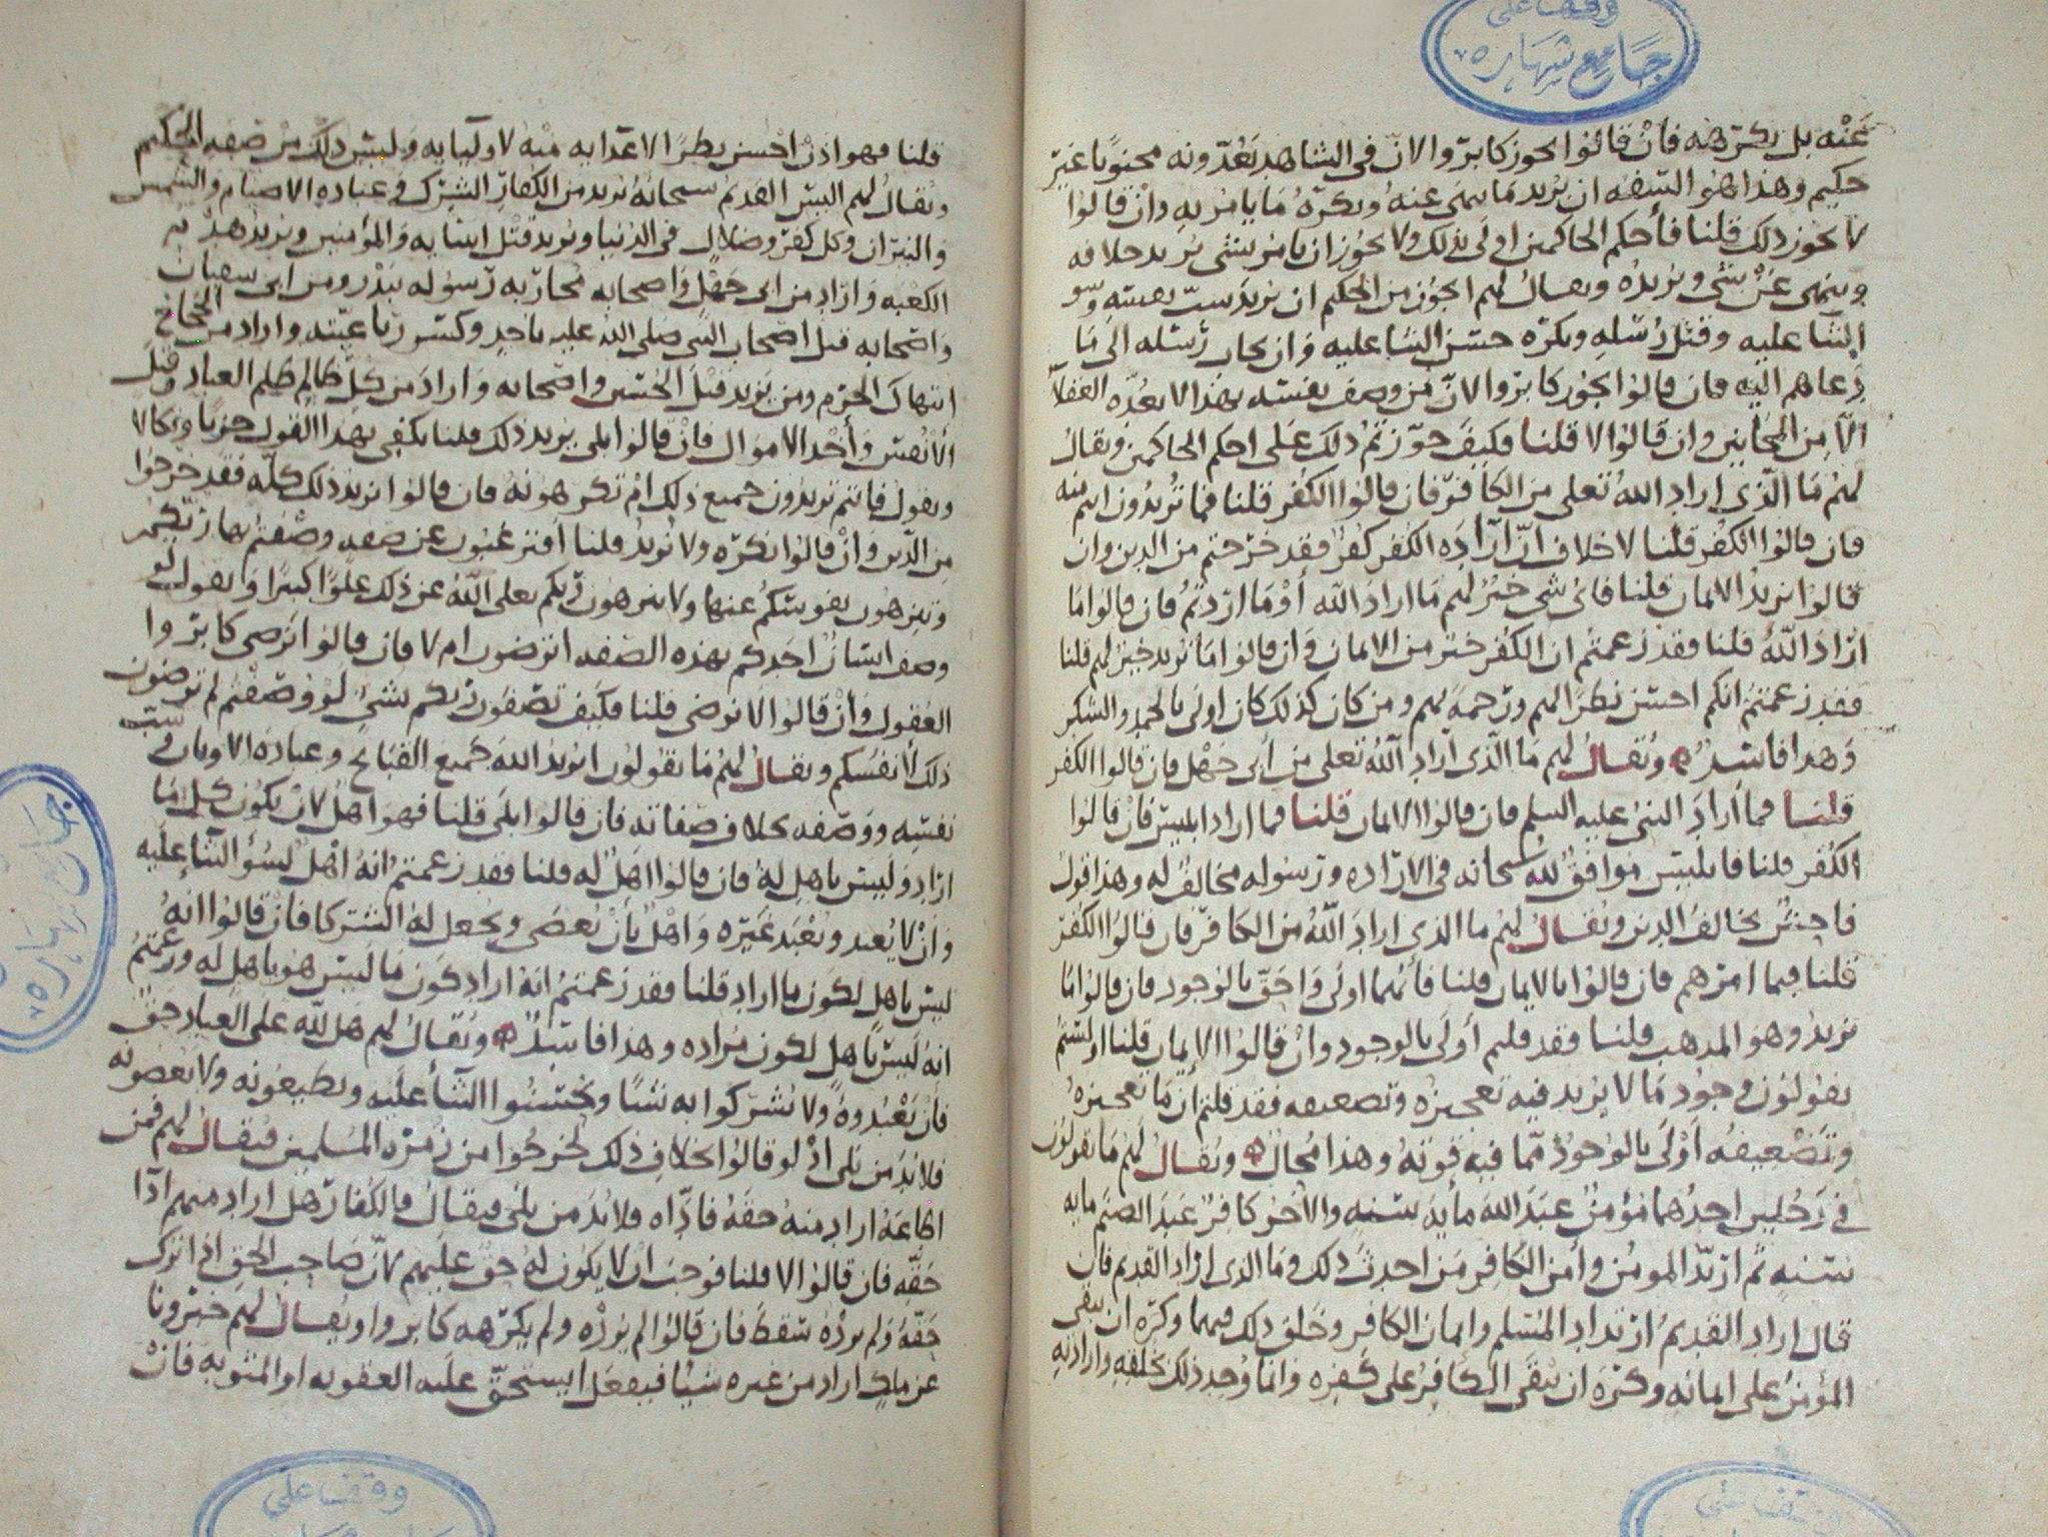 وقف على
جامع شهاره
عنه بل يكرهه فان قالوا يجوز كابروا لان في الشاهد يعدونه مجنونا غير
حكيم وهذا هو السفه ان يريد ما ينهى عنه ويكره ما يامر به وان قالوا
لا يجوز ذلك قلنا فأحكم الحاكمين اولى بذلك ولا يجوز ان يامر بشي يريد خلافه
وينهى عن شي ويريده ويقال لهم ايجوز من الحكيم ان يريد سب نفسه وسو
الثنا عليه وقتل رسله ويكره حسن الثنا عليه وان يجاب رسله الى ما
دعاهم اليه فان قالوا يجوز كابروا لان من وصف نفسه بهذا لا يعده العقلا
الا من المجانين وان قالوا لا قلنا فكيف جوزتم ذلك على احكم الحاكمين ويقال
لهم ما الذي اراد الله تعلى من الكافر فان قالوا الكفر قلنا فما تريدون انتم منه
فان قالوا الكفر قلنا لا خلاف ان ارادة الكفر كفر فقد خرجتم من الدين وان
قالوا نريد الايمان قلنا فاي شي خير لهم ما اراد الله أو ما اردتم فان قالوا ما
اراد الله قلنا فقد زعمتم ان الكفر خير من الايمان وان قالوا ما نريد خير لهم قلنا
فقد زعمتم انكم احسن نظرا لهم ورحمة بهم ومن كان كذلك كان اولى بالحمد والشكر
وهذا فاسد ويقال لهم ما الذي اراد الله تعلى من أبي جهل فان قالوا الكفر
قلنا فما أراد النبي عليه السلم فان قالوا الايمان قلنا فما اراد ابليس فان قالوا
الكفر قلنا فابليس موافق لله سبحانه في الاراده ورسوله مخالف له وهذا قول
فاحش يخالف الدين ويقال لهم ما الذي اراد الله من الكافر فان قالوا الكفر
قلنا فبما امرهم فان قالوا بالايمان قلنا فأيهما اولى واحق بالوجود فان قالوا ما
نريد وهو المذهب قلنا فقد قلتم أولى بالوجود وان قالوا الايمان قلنا اولستم
تقولون وجود ما لا يريد فيه تعجيزه وتضعيفه فقد قلتم ان ما تعجيزه
وتضعيفه أولى بالوجود مما فيه قوته وهذا محال ويقال لهم ما تقولون
في رجلين احدهما مؤمن عبد الله مايه سنه والاخر كافر عبد الصنم مايه
سنه ثم ارتد المومن وأمن الكافر من احدث ذلك وما الذي اراد القديم فان
قال اراد القديم ارتداد المسلم وايمان الكافر وخلق ذلك فيهما وكره ان يبقى
المؤمن على ايمانه وكره ان يبقى الكافر على كفره وانما وجد ذلك بخلقه وارادته
قلنا فهو اذن احسن نظرا لاعدايه منه لاوليايه وليس ذلك من صفه الحكيم
ويقال لهم اليس القديم سبحانه يريد من الكفار الشرك وعبادة الاصنام والشمس
والنيران وكل كفر وضلال في الدنيا ويريد قتل انبيايه والمؤمنين ويريد هدم
الكعبه واراد من ابي جهل واصحابه محاربه رسوله ببدر ومن ابي سفيان
واصحابه قتل اصحاب النبي صلى الله عليه باحد وكسر رباعيته واراد من الحجاج
انتهاك الحرم ومن يزيد قتل الحسين واصحابه واراد من كل ظالم ظلم العباد وقتل
الأنفس وأخذ الاموال فان قالوا بلى يريد ذلك قلنا يكفي بهذا القول خزيا ونكالا
ويقول فانتم تريدون جميع ذلك ام تكرهونه فان قالوا نريد ذلك كله فقد خرجوا
من الدين وان قالوا نكره ولا نريد قلنا افترغبون عن صفه وصفتم بها ربكم
وتنزهون نفوسكم عنها ولا تنزهون ربكم تعلى الله عن ذلك علوا كبيرا ويقول لو
وصف انسان احدكم بهذه الصفه اترضون ام لا فان قالوا نرضى كابروا
العقول وان قالوا لا نرضى قلنا فكيف تصفون ربكم بشي لو وصفتم لم ترضون
ذلك لأنفسكم ويقال لهم ما تقولون ايريد الله جميع القبائح وعبادة الاوثان وسب
نفسه ووصفه بخلاف صفاته فان قالوا بلى قلنا فهو اهل لان يكون كل ما
اراد وليس باهل له فان قالوا اهل له قلنا فقد زعمتم انه أهل لسؤ الثنا عليه
وان لا يعبد ويعبد غيره واهل بأن يعصى ويجعل له الشركا فان قالوا انه
ليس باهل لكون ما اراد قلنا فقد زعمتم انه اراد كون ما ليس هو باهل له وزعمتم
انه ليس باهل لكون مراده وهذا فاسد ويقال لهم هل لله على العباد حق
فان يعبدوه ولا يشركوا به شيئا ويحسنوا الثنا عليه ويطيعونه ولا يعصونه
فلا بد من بلى اذ لو قالوا بخلاف ذلك لخرجوا من زمره المسلمين فيقال لهم فمن
اطاعه اراد منه حقه فادّاه فلا بد من بلى فيقال فالكفار هل اراد منهم ادا
حقه فان قالوا لا قلنا فوجب ان لا يكون له حق عليهم لان صاحب الحق اذا ترك
حقه ولم يرده سقط فان قالوا لم يرده ولم يكرهه كابروا ويقال لهم خبرونا
عن ملك اراد من غيره شيئا فيفعل ايستحق عليه العقوبه او المثوبه فان
جامع شهاره
وقف على